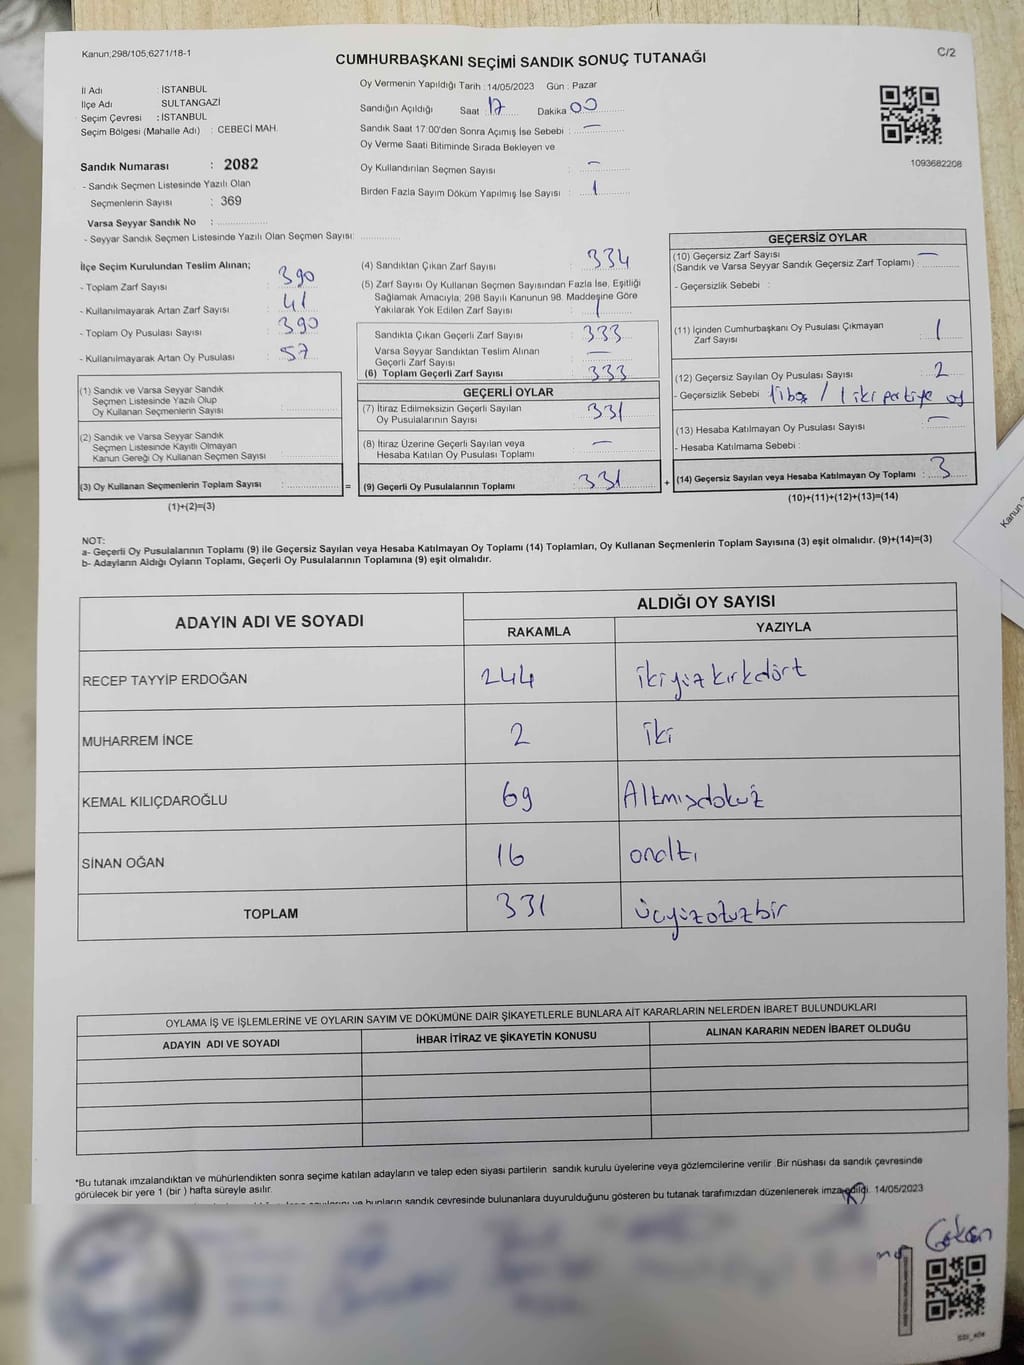 Kanun;298/105,6271/18-1
CUMHURBAŞKANI SEÇİMİ SANDIK SONUÇ TUTANAĞI
C/2
İl Adı : İSTANBUL
İlçe Adı SULTANGAZİ
Seçim Çevresi : İSTANBUL
Seçim Bölgesi (Mahalle Adı) : CEBECİ MAH.
Sandık Numarası : 2082
- Sandık Seçmen Listesinde Yazılı Olan
Seçmenlerin Sayısı : 369
Varsa Seyyar Sandık No :
- Seyyar Sandık Seçmen Listesinde Yazılı Olan Seçmen Sayısı:
Oy Vermenin Yapıldığı Tarih : 14/05/2023 Gün : Pazar
Sandığın Açıldığı Saat : 17 Dakika 00
Sandık Saat 17:00'den Sonra Açımış İse Sebebi : —
Oy Verme Saati Bitiminde Sırada Bekleyen ve
Oy Kullandırılan Seçmen Sayısı : —
Birden Fazla Sayım Döküm Yapılmış İse Sayısı : 1
1093682208
İlçe Seçim Kurulundan Teslim Alınan;
- Toplam Zarf Sayısı : 390
- Kullanılmayarak Artan Zarf Sayısı : 41
- Toplam Oy Pusulası Sayısı : 390
- Kullanılmayarak Artan Oy Pusulası : 57
(1) Sandık ve Varsa Seyyar Sandık
Seçmen Listesinde Yazılı Olup
Oy Kullanan Seçmenlerin Sayısı :
(2) Sandık ve Varsa Seyyar Sandık
Seçmen Listesinde Kayıtlı Olmayan
Kanun Gereği Oy Kullanan Seçmen Sayısı :
(3) Oy Kullanan Seçmenlerin Toplam Sayısı : =
(1)+(2)=(3)
(4) Sandıktan Çıkan Zarf Sayısı : 334
(5) Zarf Sayısı Oy Kullanan Seçmen Sayısından Fazla İse, Eşitliği
Sağlamak Amacıyla; 298 Sayılı Kanunun 98. Maddesine Göre
Yakılarak Yok Edilen Zarf Sayısı : 1
Sandıkta Çıkan Geçerli Zarf Sayısı : 333
Varsa Seyyar Sandıktan Teslim Alınan
Geçerli Zarf Sayısı : —
(6) Toplam Geçerli Zarf Sayısı : 333
GEÇERLİ OYLAR
(7) İtiraz Edilmeksizin Geçerli Sayılan
Oy Pusulalarının Sayısı : 331
(8) İtiraz Üzerine Geçerli Sayılan veya
Hesaba Katılan Oy Pusulası Toplamı : —
(9) Geçerli Oy Pusulalarının Toplamı : 331 +
GEÇERSİZ OYLAR
(10) Geçersiz Zarf Sayısı
(Sandık ve Varsa Seyyar Sandık Geçersiz Zarf Toplamı) : —
- Geçersizlik Sebebi :
(11) İçinden Cumhurbaşkanı Oy Pusulası Çıkmayan
Zarf Sayısı : 1
(12) Geçersiz Sayılan Oy Pusulası Sayısı : 2
- Geçersizlik Sebebi 1 boş / 1 iki partiye oy
(13) Hesaba Katılmayan Oy Pusulası Sayısı : —
- Hesaba Katılmama Sebebi :
(14) Geçersiz Sayılan veya Hesaba Katılmayan Oy Toplamı : 3
(10)+(11)+(12)+(13)=(14)
NOT:
a- Geçerli Oy Pusulalarının Toplamı (9) ile Geçersiz Sayılan veya Hesaba Katılmayan Oy Toplamı (14) Toplamları, Oy Kullanan Seçmenlerin Toplam Sayısına (3) eşit olmalıdır. (9)+(14)=(3)
b- Adayların Aldığı Oyların Toplamı, Geçerli Oy Pusulalarının Toplamına (9) eşit olmalıdır.
ADAYIN ADI VE SOYADI ALDIĞI OY SAYISI
RAKAMLA YAZIYLA
RECEP TAYYİP ERDOĞAN 244 ikiyüzkırkdört
MUHARREM İNCE 2 iki
KEMAL KILIÇDAROĞLU 69 Altmışdokuz
SİNAN OĞAN 16 onaltı
TOPLAM 331 üçyüzotuzbir
OYLAMA İŞ VE İŞLEMLERİNE VE OYLARIN SAYIM VE DÖKÜMÜNE DAİR ŞİKAYETLERLE BUNLARA AİT KARARLARIN NELERDEN İBARET BULUNDUKLARI
ADAYIN ADI VE SOYADI İHBAR İTİRAZ VE ŞİKAYETİN KONUSU ALINAN KARARIN NEDEN İBARET OLDUĞU
*Bu tutanak imzalandıktan ve mühürlendikten sonra seçime katılan adayların ve talep eden siyasi partilerin sandık kurulu üyelerine veya gözlemcilerine verilir .Bir nüshası da sandık çevresinde
görülecek bir yere 1 (bir ) hafta süreyle asılır.
ve bunların sandık çevresinde bulunanlara duyurulduğunu gösteren bu tutanak tarafımızdan düzenlenerek imza edildi. 14/05/2023
Gökan
Kanun